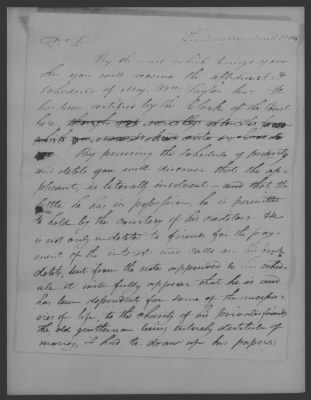 Louisville
D. Sir
By the mail which brings you
this you will receive the affidavit &
schedule of Maj. Wm Taylor
has been certified by the Clerk of the Court
here
By perusing the schedule of property
and debts you will discover that the ap-
plicant, is literally insolvent — and that the
little he has in possession, he is permitted
to hold by the courtesy of his creditors. He
is not only indebted to friends for the pay-
ment of the interest and calls on his bank
debts, but from the note appended to his sched-
ule it will fully appear that he is and
has been dependent for some of the necessa-
ries of life, to the charity of his private friends
the old gentleman being entirely destitute of
money, I had to draw up his papers